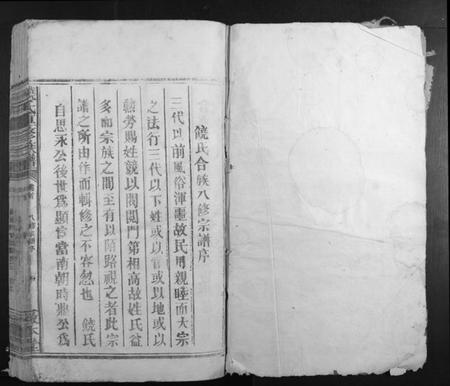 饒氏合族八修宗譜序
三代以前風俗渾噩故民用親睦而大宗
之法行三代以下姓或以官或以地或以
勳勞賜姓競以閥閱門第相高故姓氏益
多而宗族之間至有以陌路視之者此宗
譜之所由作而輯修之不容忽也饒氏
自思永公後世為顯官當南朝時鼎公為